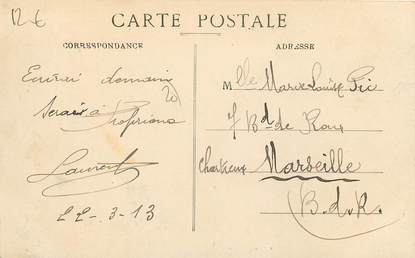 12 €
CARTE POSTALE
CORRESPONDANCE
ADRESSE
Ecrirai demain
20
serai à Propriano
Laurent
22-3-13
Mlle Marie Louise Pic
7 Bd de Roux
Chartreux Marseille
B.d.R.